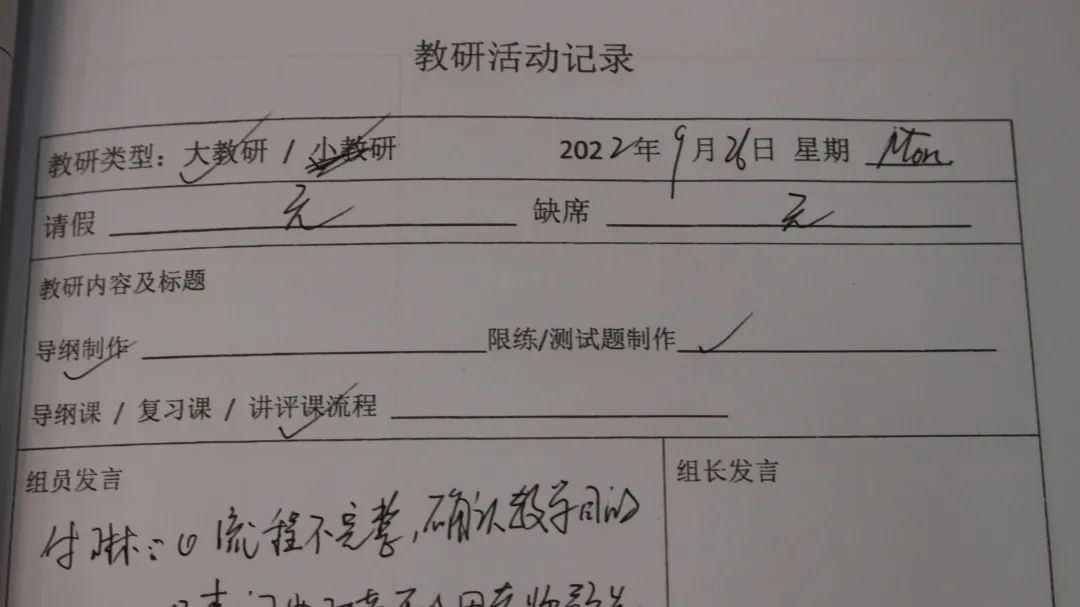 教研活动记录
教研类型：大教研 / 小教研 2022年9月26日 星期 Mon
请假 无 缺席 无
教研内容及标题
导纲制作 限练/测试题制作
导纲课 / 复习课 / 讲评课流程
组员发言 组长发言
付琳：① 流程不完整，确认教学目的